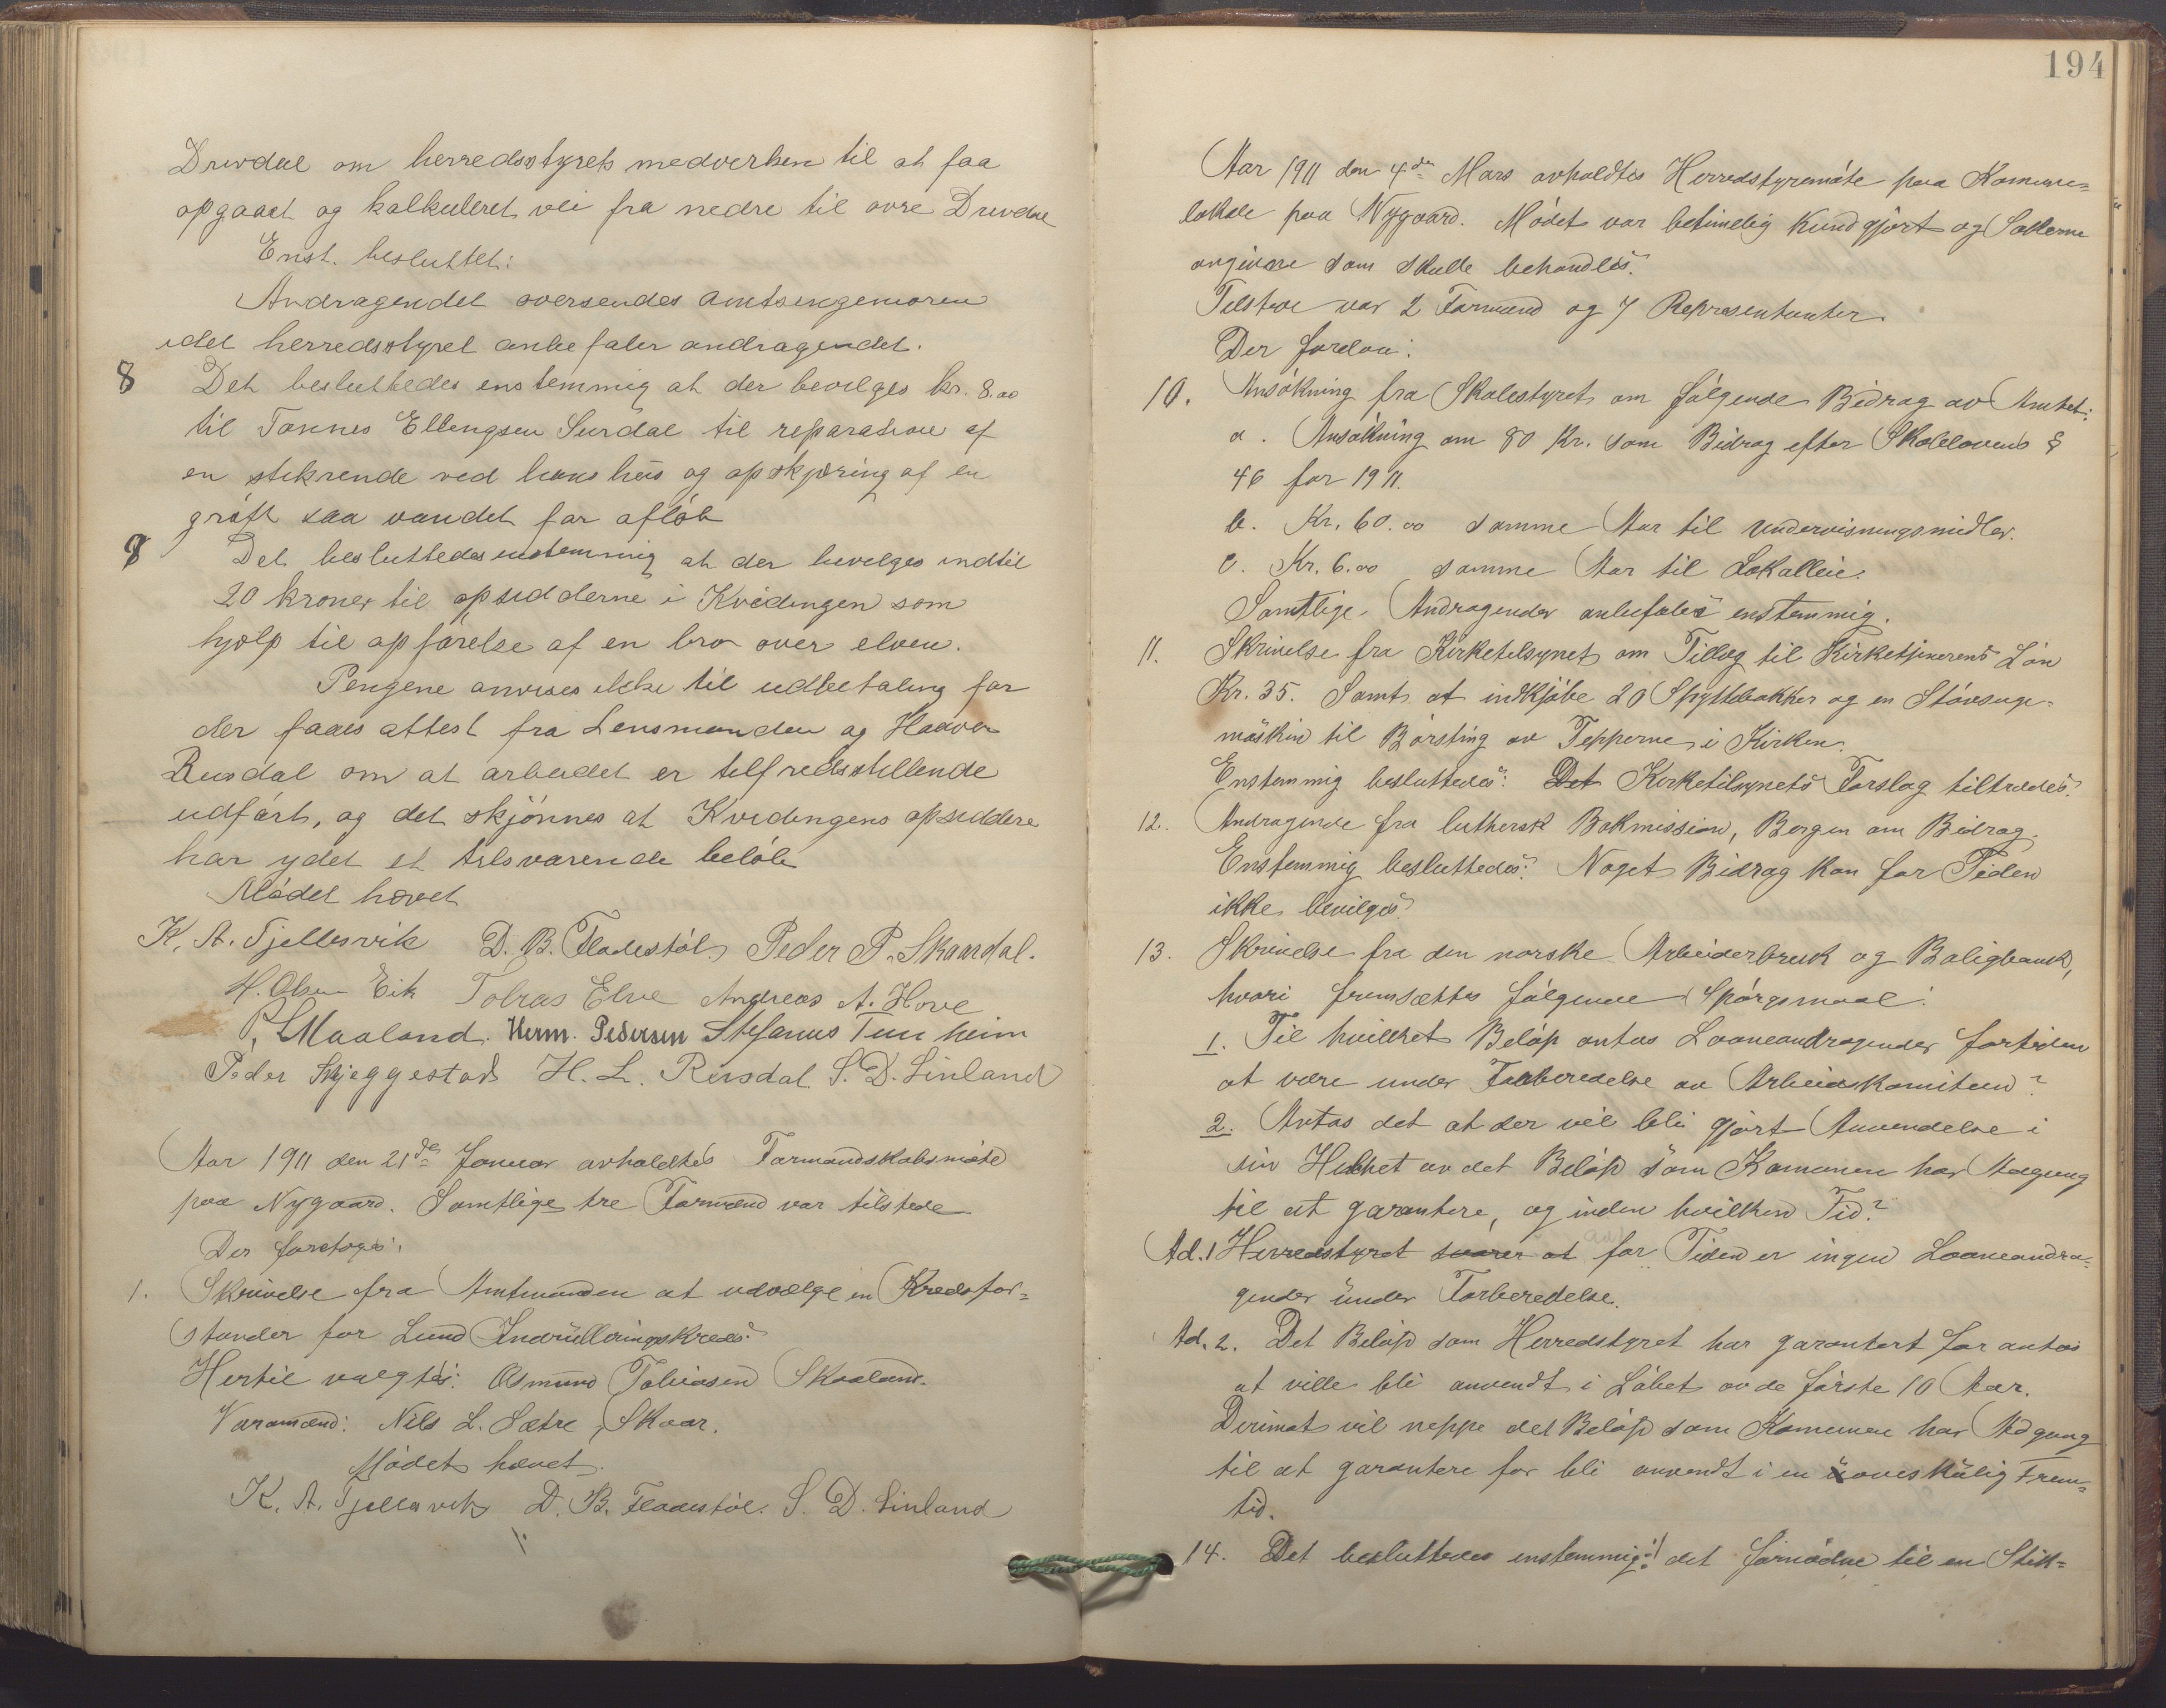 Drivdal om herredsstyrets medverken til at faa
opgaaet og kalkuleret vei fra nedre til øvre Drivdal
Enst. besluttet:
Andragendet oversendes amtsingeniøren
idet herredsstyret anbefaler andragendet.
8 Det besluttedes enstemmig at der bevilges kr. 8.00
til Tønnes Ellingsen Surdal til reparation af
en stikrende ved hans hus og opskjæring af en
grøft saa vandet får afløb
9 Det besluttedes enstemmig at der bevilges indtil
20 kroner til opsidderne i Kvidingen som
hjælp til opførelse af en bro over elven.
Pengene anvises ikke til udbetaling før
der faaes attest fra Lensmanden og Haavar
Rusdal om at arbeidet er tilfredsstillende
udført, og det skjønnes at Kvidingens opsiddere
har ydet et tilsvarende beløb
Mødet hævet
K. A. Tjellesvik D. B. Fladestøl. Peder P. Skaardal.
H. Olsen Eik Tobias Elve Andreas A. Hove
P. L Maaland. Herm. Pedersen Stefanus Tunheim
Peder Skjeggestad H. L. Rusdal. S. D. Linland
Aar 1911 den 21de Januar avholdtes Formandskabsmøte
paa Nygaard. Samtlige tre Formænd var tilstede
Der foretoges:
1. Skrivelse fra Amtmanden at udvælge en Kredsfor=
stander for Lund Indrulleringskreds.
Hertil valgtes: Osmund Tobiasen Skaaland.
Varamænd: Nils L. Sætre, Skaar.
Mødet hævet.
K. A. Tjellesvik D. B. Fladestøl. S. D. Linland
194
Aar 1911 den 4de Mars avholdtes Herredstyremøte paa Komune=
lokale paa Nygaard. Mødet var betimelig kundgjort og Sakerne
angivne som skulde behandles.
Tilstede var 2 Formænd og 7 Representanter.
Der forelaa:
10. Ansøkning fra Skolestyret om følgende Bidrag av Amtet:
a. Ansøkning om 80 Kr. som Bidrag efter Skolelovens §
46 for 1911.
b. Kr. 60.00 samme Aar til Undervisningsmidler.
c. Kr. 6.00 samme Aar til Lokalleie.
Samtlige Andragender anbefales enstemmig.
11. Skrivelse fra Kirketilsynet om Tillæg til Kirketjenerens Løn
Kr. 35. Samt at indkjøbe 20 Spyttebakker og en Støvsuge-
maskin til Børsting av Tepperne i Kirken.
Enstemmig besluttedes: Det Kirketilsynets Forslag tiltrædes.
12. Andragende fra luthersk Bokmission, Bergen om Bidrag.
Enstemmig besluttedes: Noget Bidrag kan for Tiden
ikke bevilges.
13. Skrivelse fra den norske Arbeiderbruk og Boligbank,
hvori fremsættes følgende Spørgsmaal:
1. Til hvilket Beløp antas Laaneandragender fortiden
at være under Forberedelse av Arbeidskomiteen?
2. Antas det at der vil bli gjort Anvendelse i
sin Helhet av det Beløp som Komunen har Adgang
til at garantere, og inden hvilken Tid?
Ad. 1 Herredstyret svarer at for Tiden er ingen Laaneandra=
gender under Forberedelse.
Ad. 2. Det Beløp som Herredstyret har garantert for antas
at ville bli anvendt i Løbet av de første 10 Aar.
Derimot vil neppe det Beløp som Komunen har Adgang
til at garantere for bli anvendt i en overskulig Frem=
tid.
14. Det besluttedes enstemmig: det fornødne til en Stik=